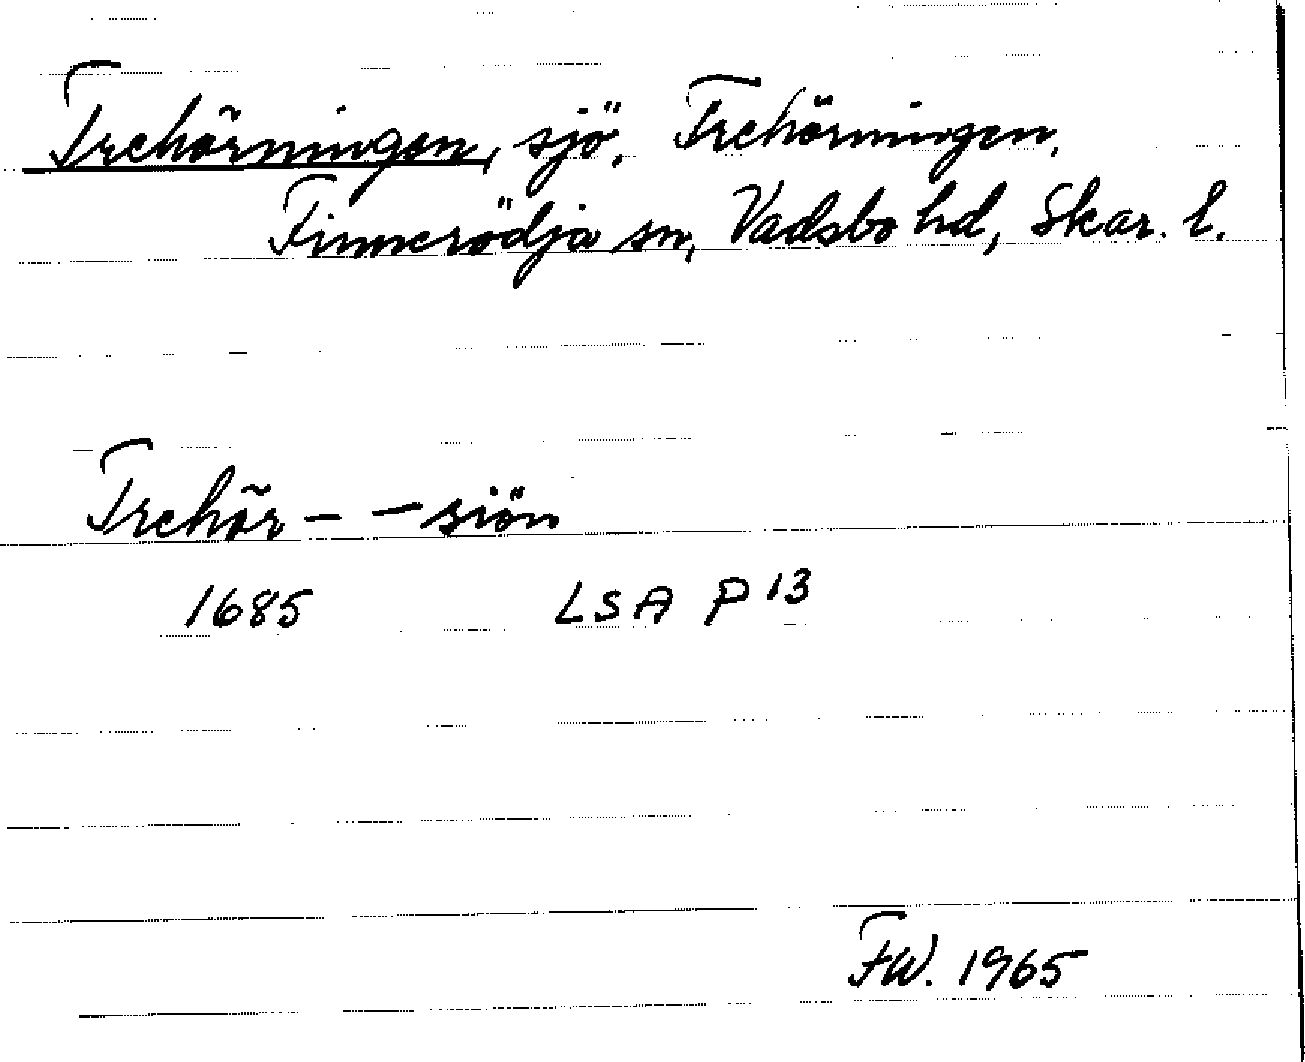 Trehörningen, sjö. Trehörningen,
Finnerödja sn, Vadsbo hd, Skar. l.
Trehör– –siön
1685 LSA P 13
FW. 1965